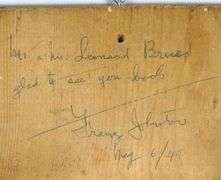 Mr & Mrs. Leonard
glad to see you back
Franz Johnston
May 6/48